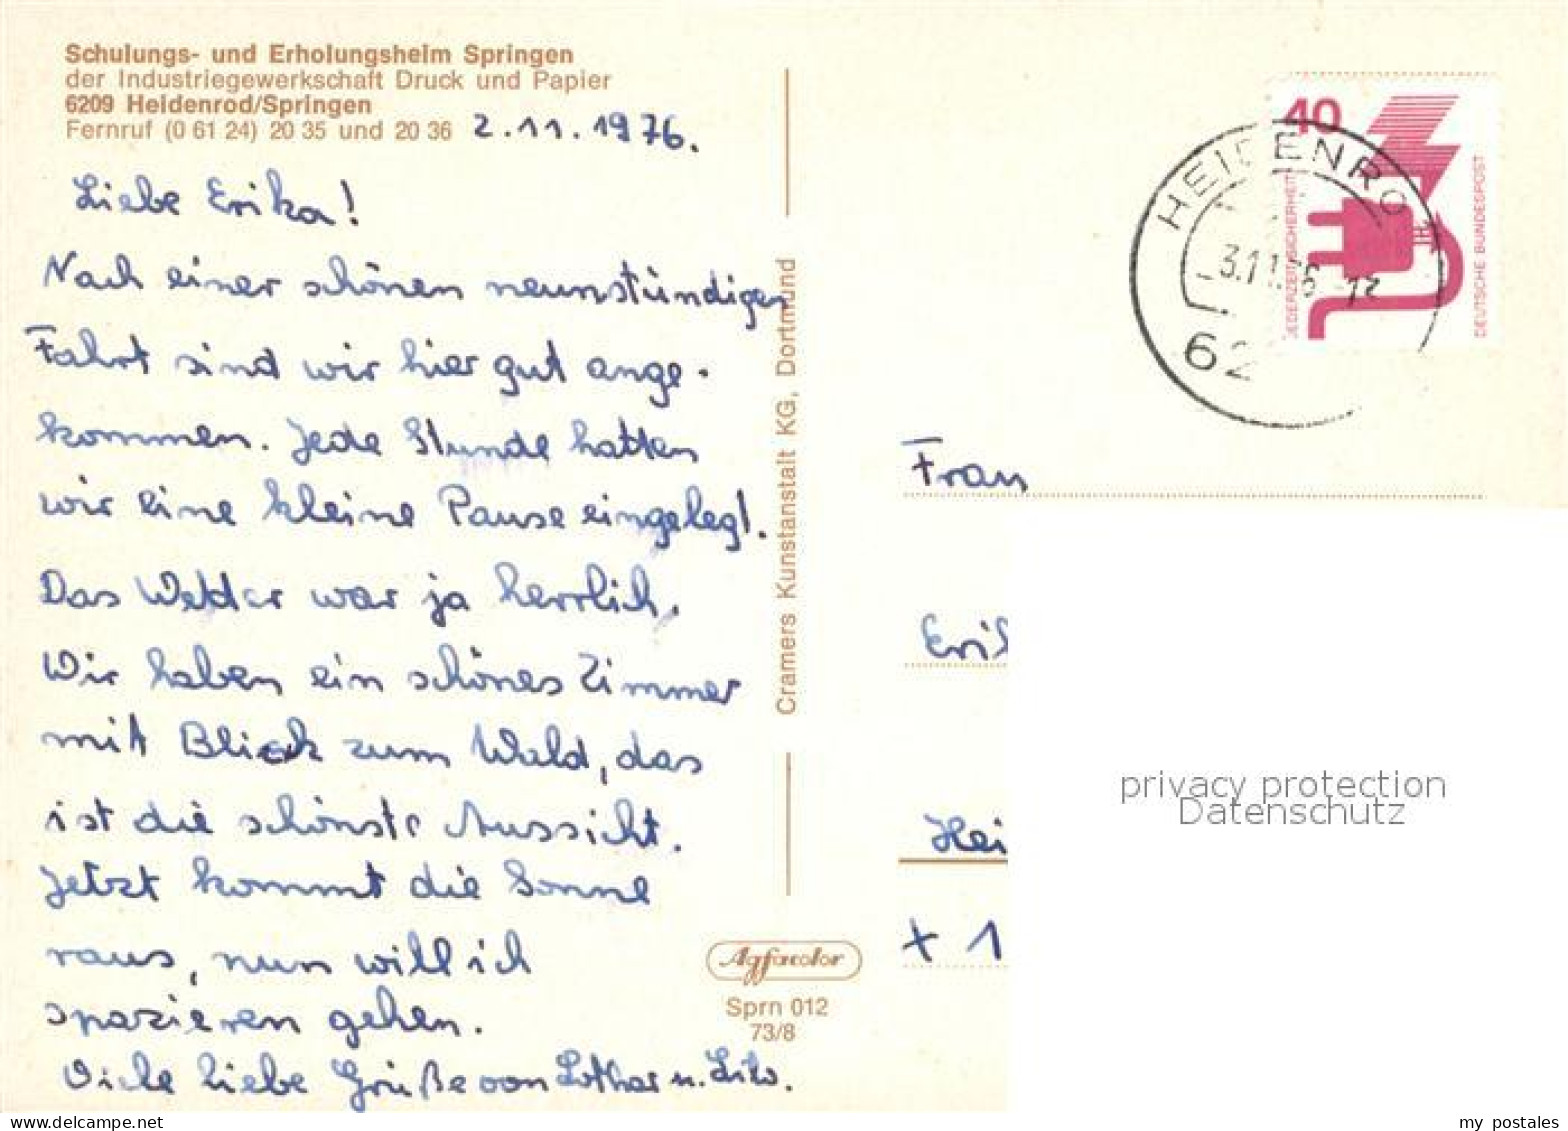 Schulungs- und Erholungsheim Springen
der Industriegewerkschaft Druck und Papier
6209 Heidenrod/Springen
Fernruf (0 61 24) 20 35 und 20 36
2.11.1976.
Liebe Erika!
Nach einer schönen neunstündigen
Fahrt sind wir hier gut ange-
kommen. Jede Stunde hatten
wir eine kleine Pause eingelegt.
Das Wetter war ja herrlich.
Wir haben ein schönes Zimmer
mit Blick zum Wald, das
ist die schönste Aussicht.
Jetzt kommt die Sonne
raus, nun will ich
spazieren gehen.
Viele liebe Grüße von Lothar u. Lilo.
Cramers Kunstanstalt KG, Dortmund
Agfacolor
Sprn 012
73/8
40
JEDERZEIT SICHERHEIT
DEUTSCHE BUNDESPOST
HEIDENRO
3.11.76-12
62
Frau
Erik
Hei
+ 1
privacy protection
Datenschutz
my postales